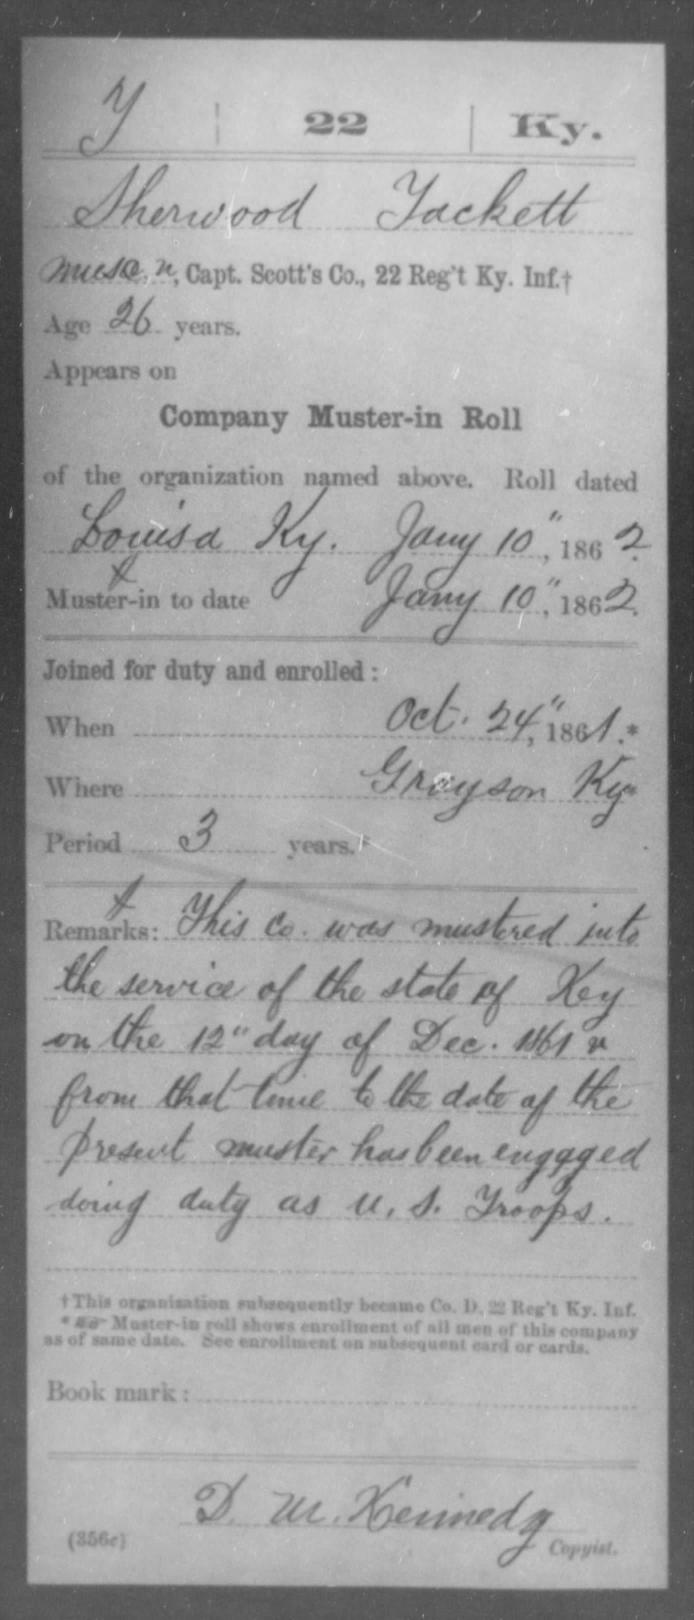 T | 22 | Ky.
Sherwood Tackett
Musc.n, Capt. Scott's Co., 22 Reg't Ky. Inf.†
Age 26 years.
Appears on
Company Muster-in Roll
of the organization named above. Roll dated
Louisa Ky. Jany 10", 1862.
Muster-in to date Jany 10", 1862.
Joined for duty and enrolled:
When Oct. 24", 1861.*
Where Grayson Ky*
Period 3 years.*
Remarks: This Co. was mustered into
the service of the state of Key
on the 12" day of Dec. 1861 &
from that time to the date of the
present muster has been engaged
doing duty as U. S. Troops.
†This organization subsequently became Co. D, 22 Reg't Ky. Inf.
* Muster-in roll shows enrollment of all men of this company
as of same date. See enrollment on subsequent card or cards.
Book mark:
D. M. Kennedy
(356c) Copyist.